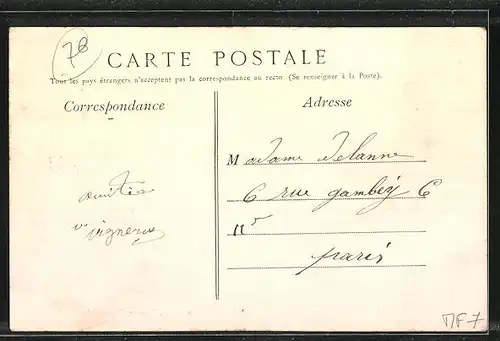 78
CARTE POSTALE
Tous les pays étrangers n'acceptent pas la correspondance au recto. (Se renseigner à la Poste).
Correspondance
Adresse
Madame Delanne
6 rue gambey 6
amitié
11e
v. vigneron
paris
MF7